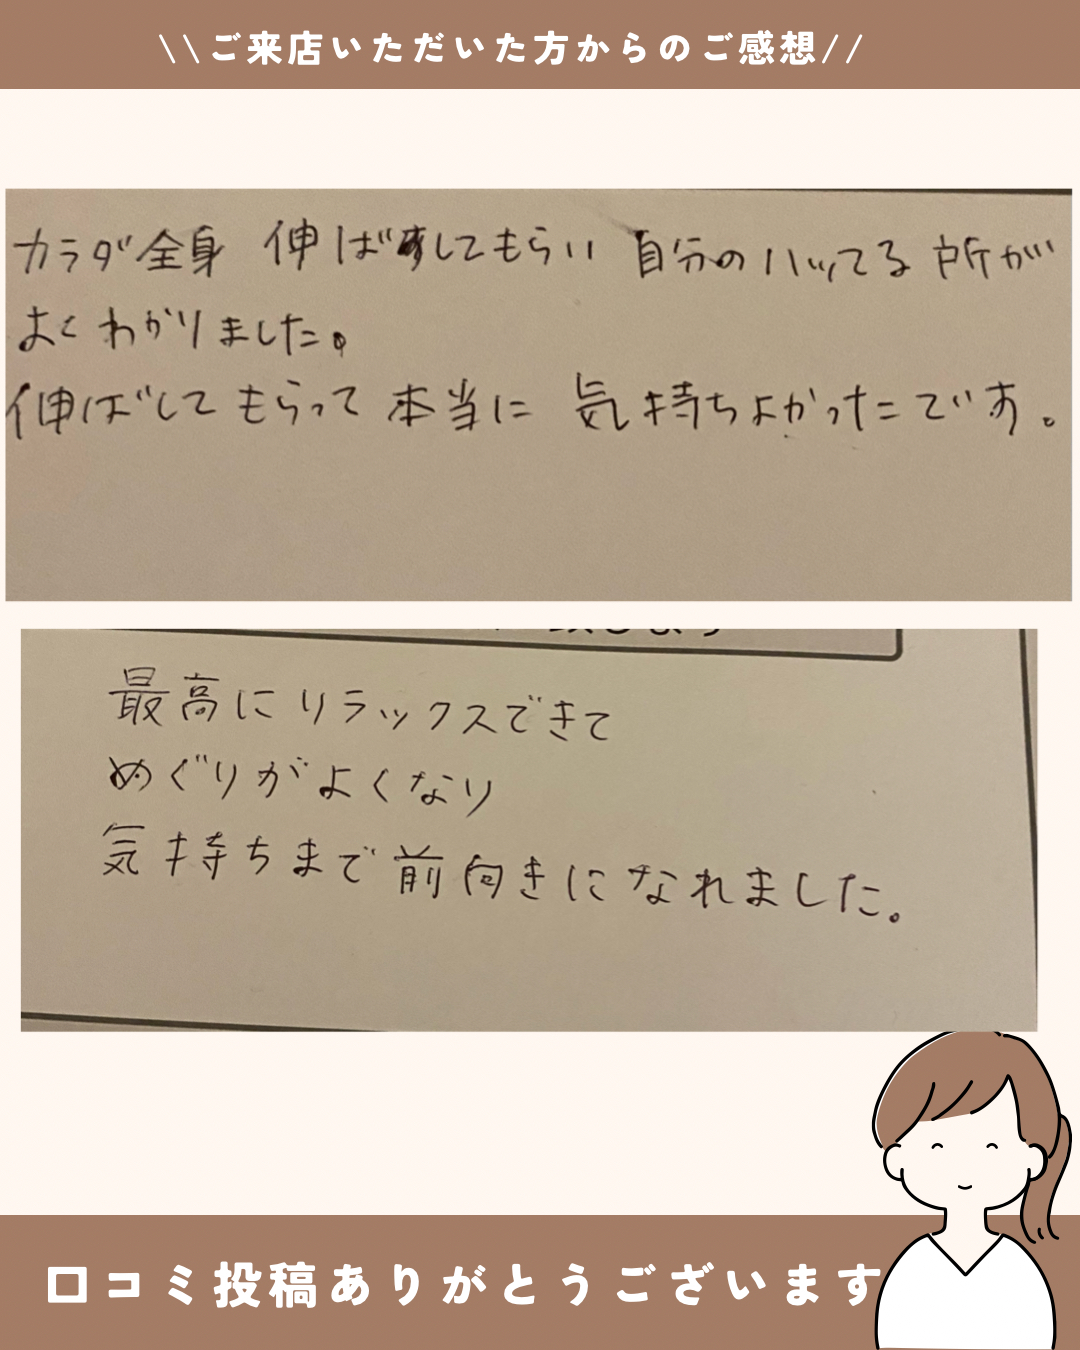 \\ご来店いただいた方からのご感想//
カラダ全身 伸ばしてもらい 自分のハッてる所が
よくわかりました。
伸ばしてもらって本当に 気持ちよかったです。
最高にリラックスできて
めぐりがよくなり
気持ちまで前向きになれました。
口コミ投稿ありがとうございます